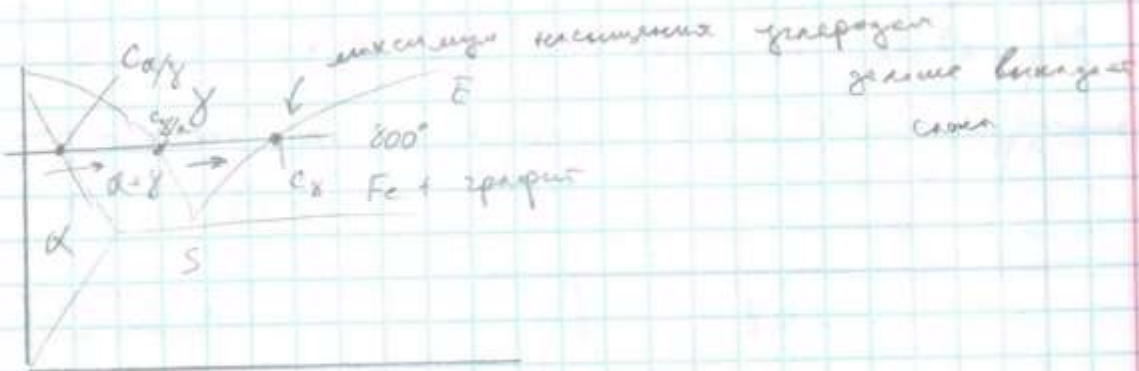 максимум насыщения углеродом
дальше выпадает
сажа
Cα/γ
Cγ/α γ
E
800°
α+γ
Cγ Fe + графит
α
S